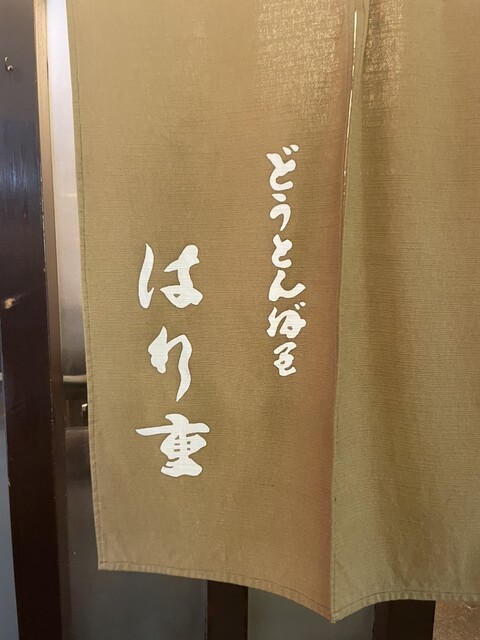 どうとんぼり
はり重